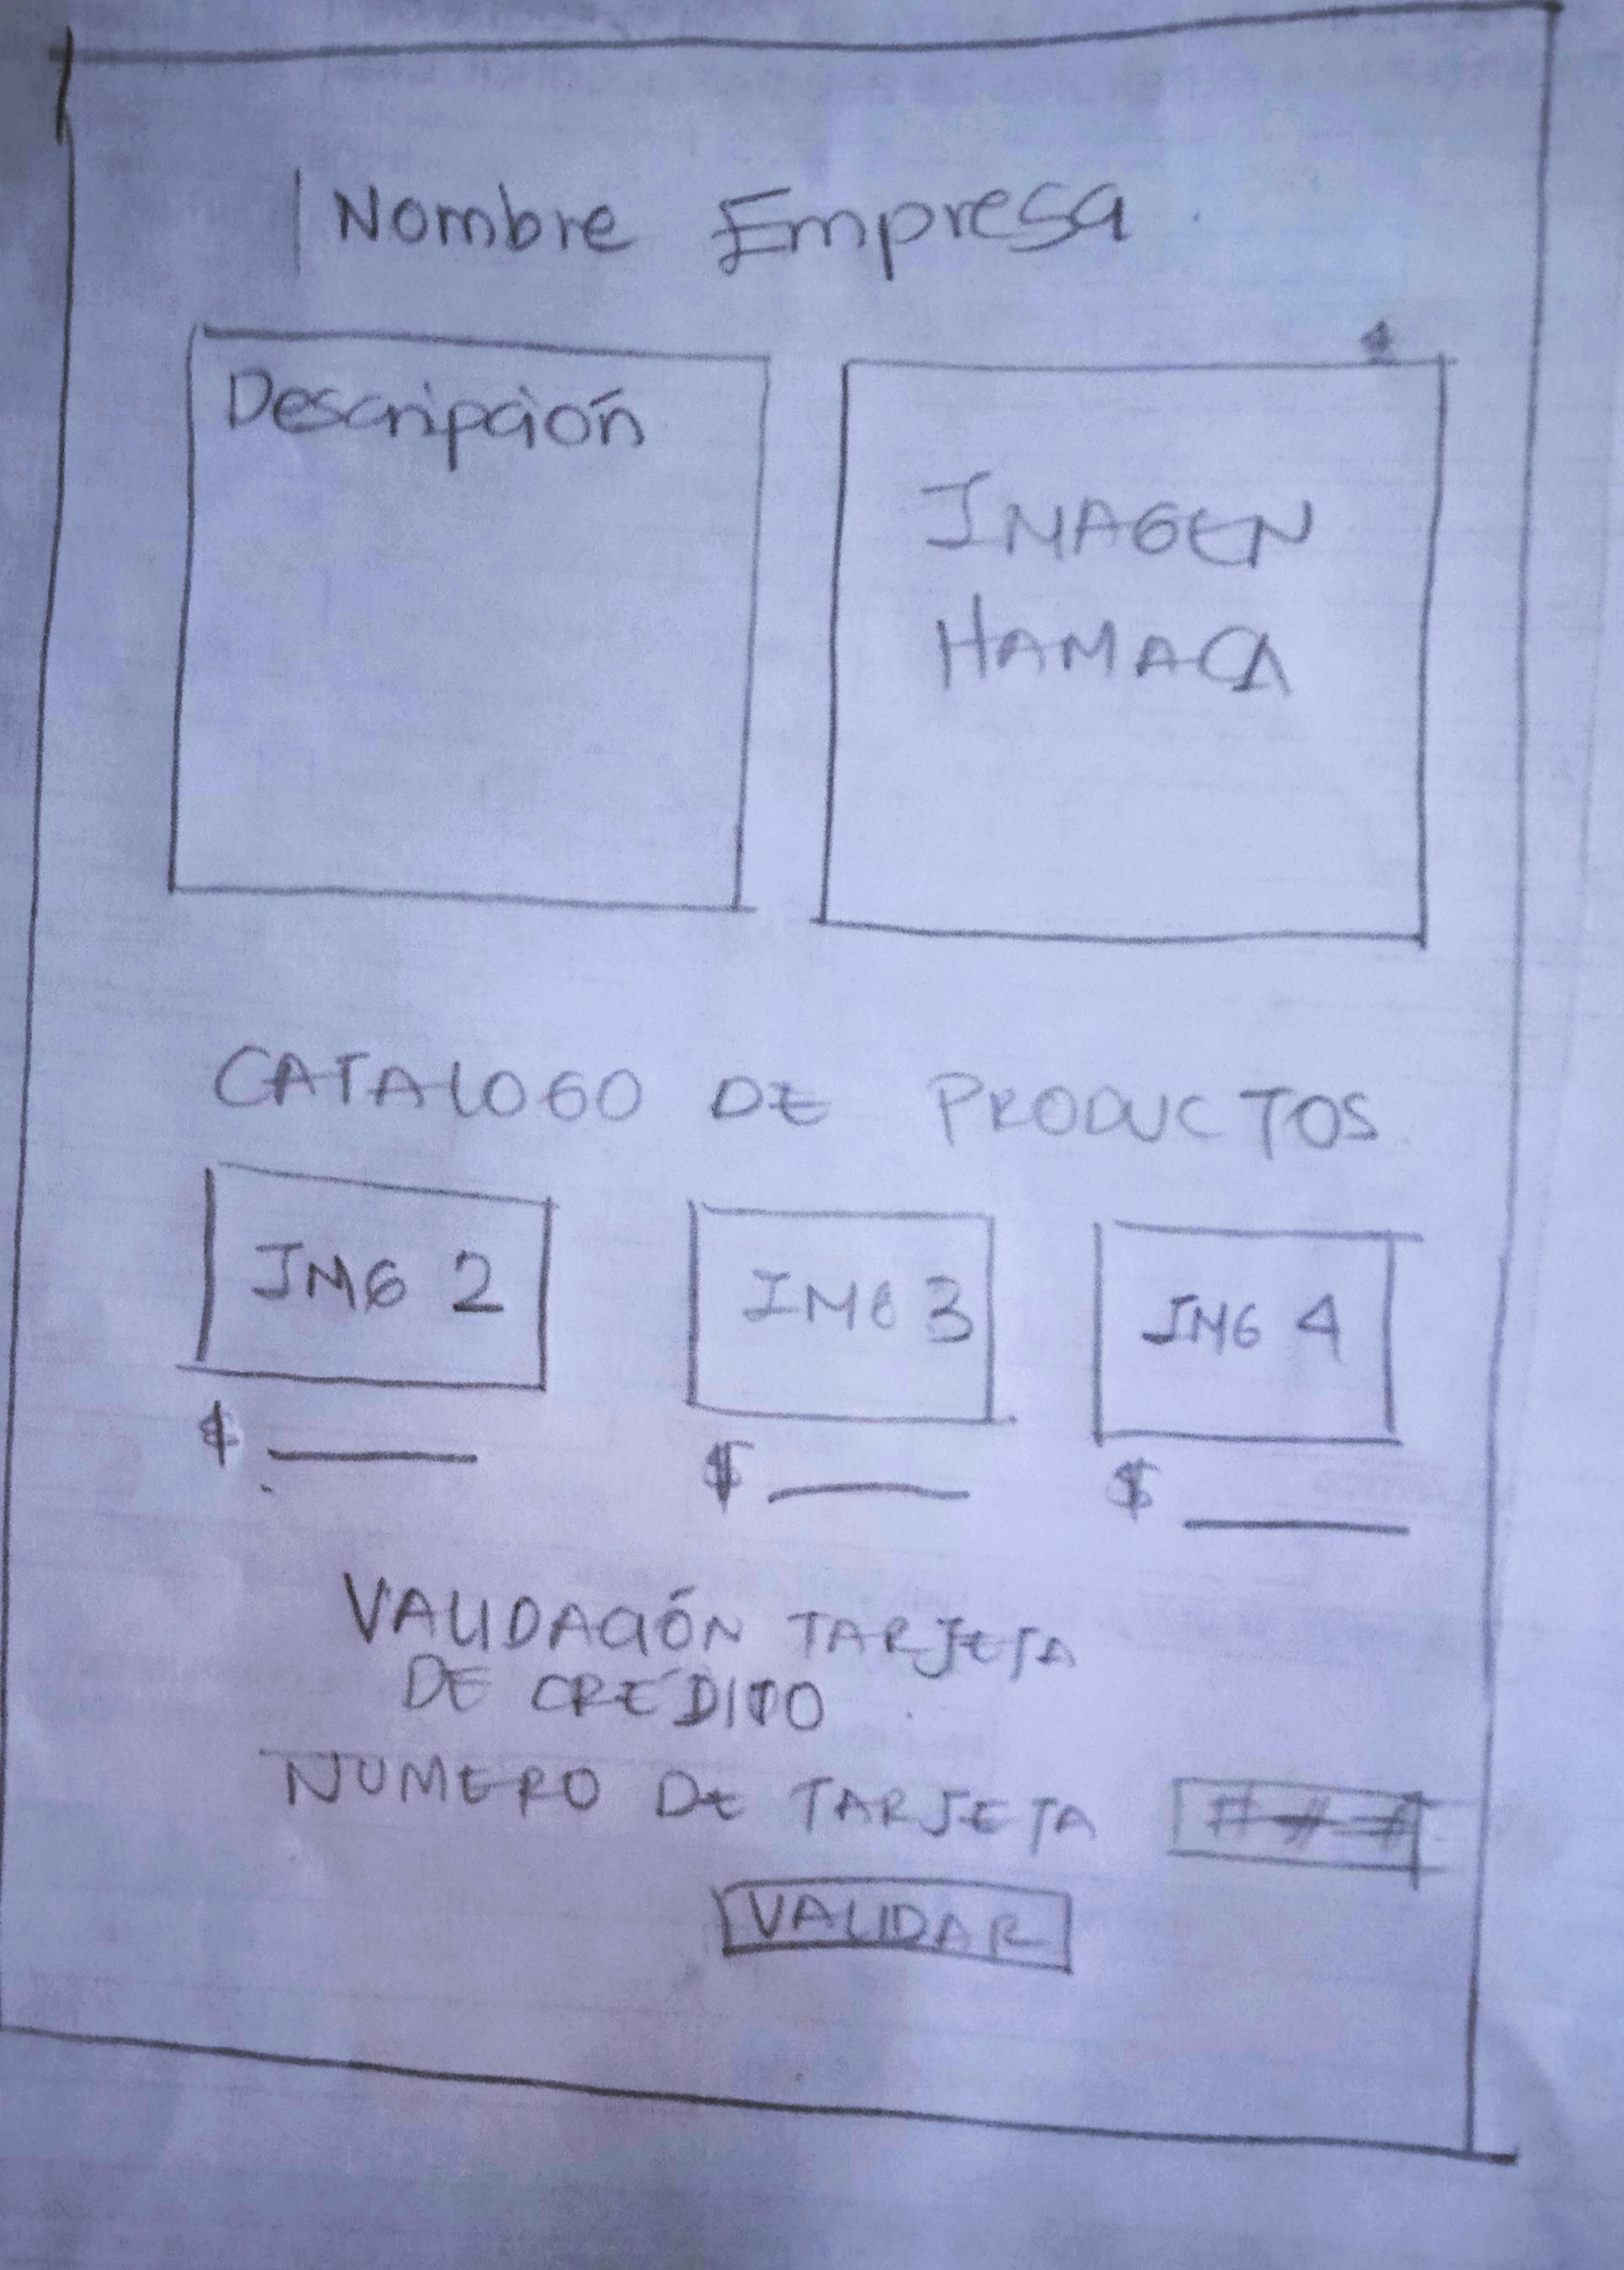 Nombre Empresa
Descripción
IMAGEN
HAMACA
CATALOGO DE PRODUCTOS
IMG 2
IMG 3
IMG 4
$
$
$
VALIDACIÓN TARJETA
DE CRÉDITO
NUMERO DE TARJETA ###
VALIDAR